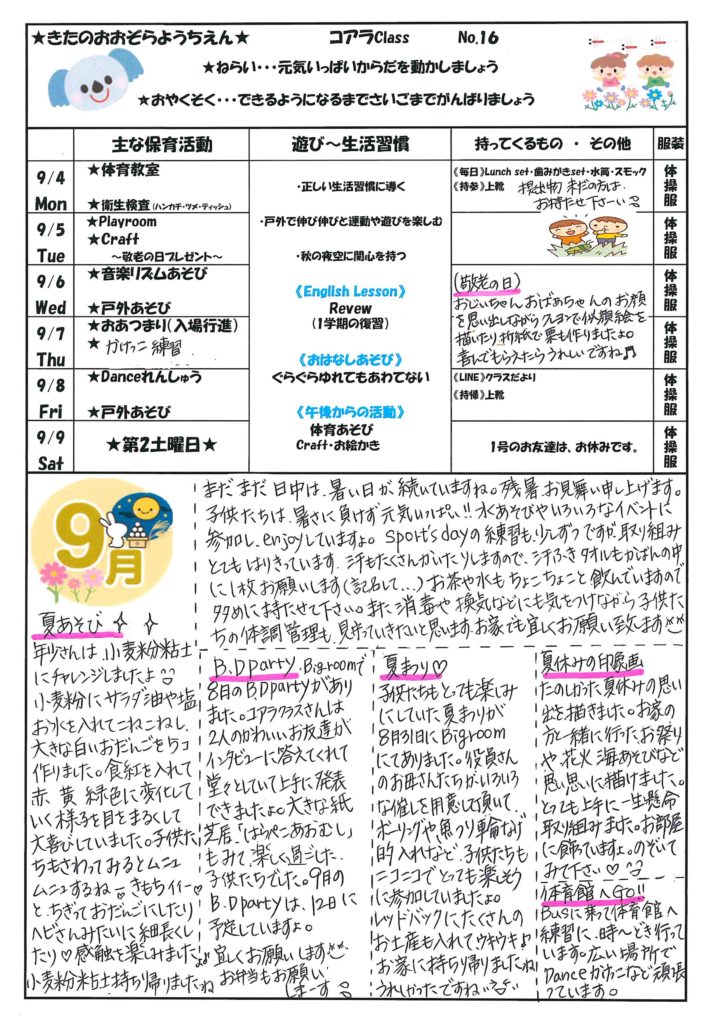 ★きたのおおぞらようちえん★ コアラClass No.16
★ねらい・・・元気いっぱいからだを動かしましょう
★おやくそく・・・できるようになるまでさいごまでがんばりましょう
主な保育活動 遊び～生活習慣 持ってくるもの ・ その他 服装
9/4
Mon
★体育教室
★衛生検査(ハンカチ・ツメ・ティッシュ)
9/5
Tue
★Playroom
★Craft
～敬老の日プレゼント～
9/6
Wed
★音楽リズムあそび
★戸外あそび
9/7
Thu
★おあつまり(入場行進)
★ かけっこ 練習
9/8
Fri
★Danceれんしゅう
★戸外あそび
9/9
Sat
★第2土曜日★
・正しい生活習慣に導く
・戸外で伸び伸びと運動や遊びを楽しむ
・秋の夜空に関心を持つ
《English Lesson》
Revew
(1学期の復習)
《おはなしあそび》
ぐらぐらゆれてもあわてない
《午後からの活動》
体育あそび
Craft・お絵かき
《毎日》Lunch set・歯みがきset・水筒・スモック
《持参》上靴 提出物 まだの方は、
お持たせ下さーい
(敬老の日)
おじいちゃん おばあちゃんの お顔
を思い出しながら クレヨンで似顔絵を
描いたり 折紙で栗も作りましたよ。
喜んでもらえたらうれしいですね♫
《LINE》クラスだより
《持帰》上靴
1号のお友達は、お休みです。
体操服
体操服
体操服
体操服
体操服
体操服
9月
まだ まだ 日中は、暑い日が 続いていますね。残暑 お見舞い申し上げます。
子供たちは 暑さに負けず元気いっぱい!! 水あそびやいろいろなイベントに
参加し、enjoyしていますよ。Sport'sdayの練習も、少しずつですが、取り組み
とてもはりきっています。汗もたくさんかいたりしますので、汗ふきタオルもかばんの中
に1枚お願いします(記名して...)お茶や水もちょこちょこと飲んでいますので
多めに持たせて下さい。また 消毒や 換気などにも気をつけながら 子供た
ちの体調管理も、見守っていきたいと思います。お家でも宜しくお願い致します
夏あそび
年少さんは 小麦粉粘土
にチャレンジしましたよ
小麦粉にサラダ油や塩
お水を入れてこねこねし、
大きな白いおだんごを5コ
作りました。食紅を入れて
赤 黄 緑色に変化して
いく様子を目をまるくして
大喜びしていました。子供た
ちもさわってみるとムニュ
ムニュするねー きもちイイー♡
と、ちぎっておだんごにしたり
ヘビさんみたいに細長くし
たり♡感触を楽しみました♪
小麦粉粘土持ち帰りましたね
B.Dparty
Bigroomで
8月のBDpartyがあり
ました。コアラクラスさんは
2人のかわいいお友達が
インタビューに答えてくれて
堂々としていて上手に発表
できましたよ。大きな紙
芝居「はらぺこあおむし」
もみて、楽しく過ごした
子供たちでした。9月の
B.Dpartyは、12日に
予定していますよ。
宜しくお願いします
お弁当もお願い
しまーす
夏まつり♡
子供たちもとっても楽しみ
にしていた夏まつりが
8月31日にBigroom
にてありました。役員さん
のお母さんたちがいろいろ
な催しを用意して頂いて、
ボーリングや魚つり輪なげ
的入れなど、子供たちも
ニコニコで とっても楽しそう
に参加していましたよ。
レッドバックにたくさんの
お土産も入れてウキウキ♪
お家に持ち帰りましたね
うれしかったですね
夏休みの印象画
たのしかった夏休みの思い
出を描きました。お家の
方と一緒に行ったお祭り
や 花火 海あそびなど
思い思いに描けました。
とっても上手に一生懸命
取り組みました。お部屋
に飾ていますよ。のぞいて
みて下さい♡
体育館へGO!!
Busに乗って体育館へ
練習に、時々とき行って
います。広い場所で
Danceかけっこなど頑張
っています。